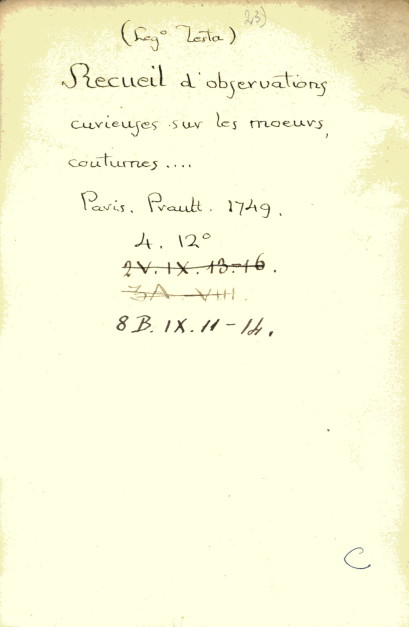 23)
(Leg° Testa)
Recueil d'observations
curieuses sur les moeurs,
coutumes....
Paris. Prault. 1749.
4. 12°
2V. IX. 13-16.
3A VIII.
8B. IX. 11-14.
C